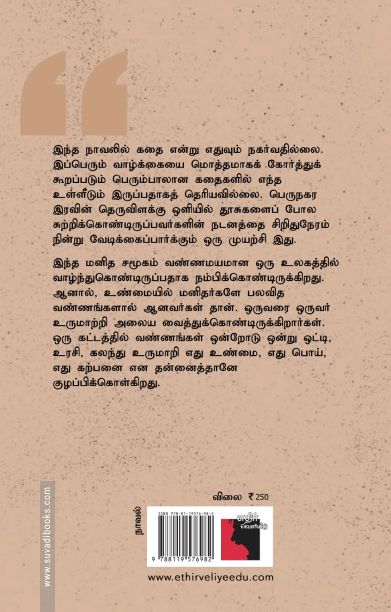 இந்த நாவலில் கதை என்று எதுவும் நகர்வதில்லை.
இப்பெரும் வாழ்க்கையை மொத்தமாகக் கோர்த்துக்
கூறப்படும் பெரும்பாலான கதைகளில் எந்த
உள்ளீடும் இருப்பதாகத் தெரியவில்லை. பெருநகர
இரவின் தெருவிளக்கு ஒளியில் தூசுகளைப் போல
சுற்றிக்கொண்டிருப்பவர்களின் நடனத்தை சிறிதுநேரம்
நின்று வேடிக்கைப்பார்க்கும் ஒரு முயற்சி இது.
இந்த மனித சமூகம் வண்ணமயமான ஒரு உலகத்தில்
வாழ்ந்துகொண்டிருப்பதாக நம்பிக்கொண்டிருக்கிறது.
ஆனால், உண்மையில் மனிதர்களே பலவித
வண்ணங்களால் ஆனவர்கள் தான். ஒருவரை ஒருவர்
உருமாற்றி அலைய வைத்துக்கொண்டிருக்கிறார்கள்.
ஒரு கட்டத்தில் வண்ணங்கள் ஒன்றோடு ஒன்று ஒட்டி,
உரசி, கலந்து உருமாறி எது உண்மை, எது பொய்,
எது கற்பனை என தன்னைத்தானே
குழப்பிக்கொள்கிறது.
www.suvadibooks.com
நாவல்
விலை ₹ 250
ISBN 978-81-19576-98-2
9 788119 576982
எதிர்
வெளியீடு
www.ethirveliyeedu.com